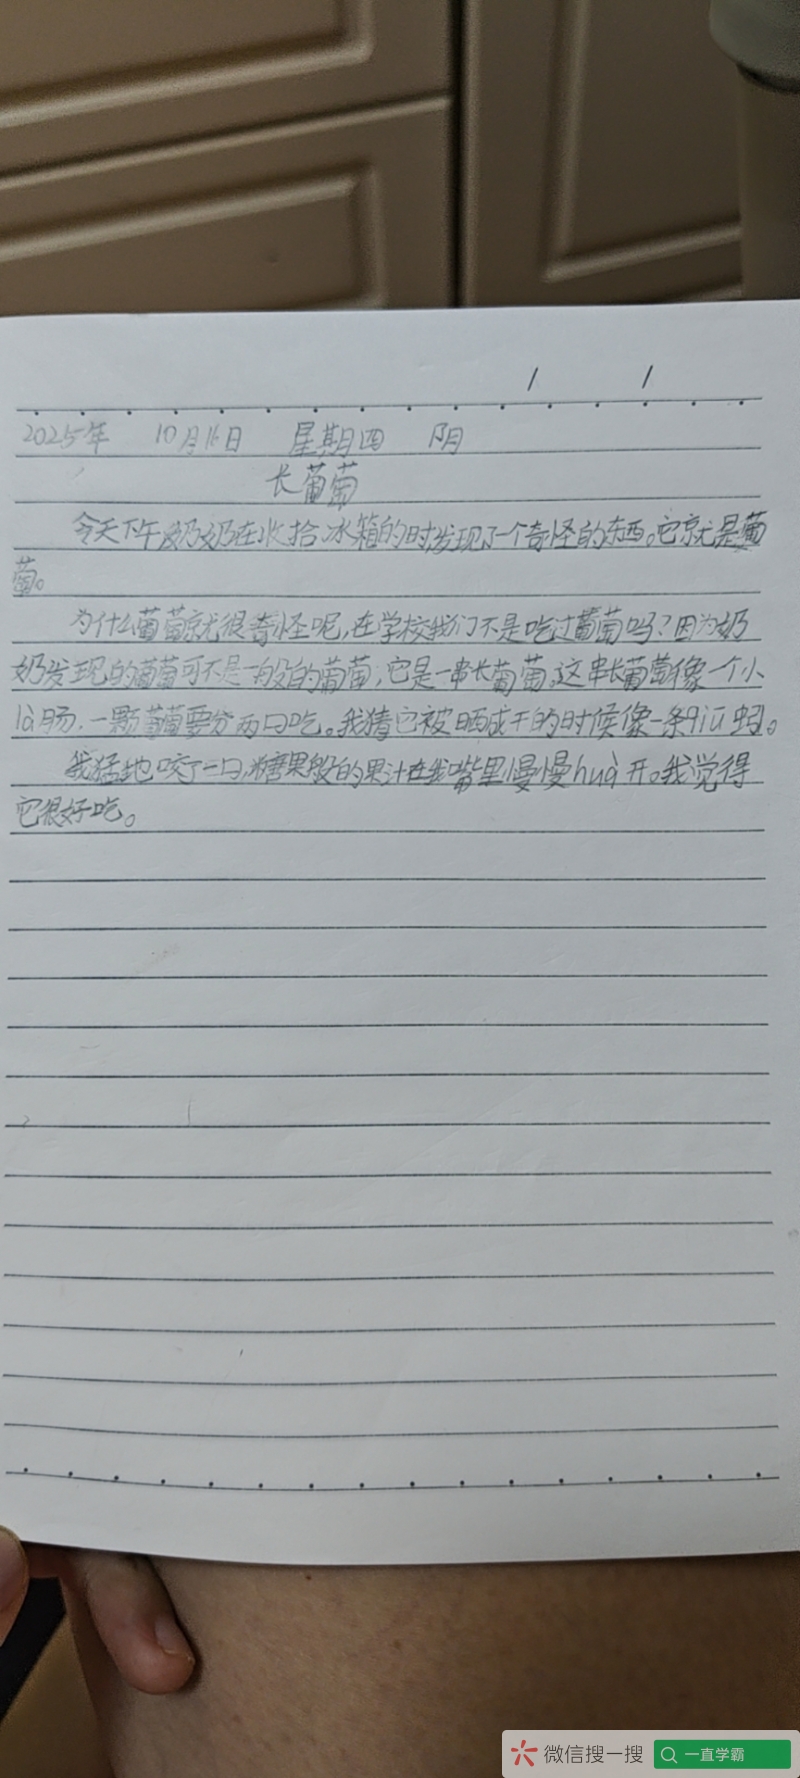 2025年 10月16日 星期四 阴
长葡萄
今天下午奶奶在收拾冰箱的时发现了一个奇怪的东西。它就是葡
萄。
为什么葡萄就很奇怪呢,在学校我们不是吃过葡萄吗?因为奶
奶发现的葡萄可不是一般的葡萄,它是一串长葡萄。这串长葡萄像一个小
là肠,一颗葡萄要分两口吃。我猜它被晒成干的时候像一条qiū蚓。
我猛地咬了一口,糖果般的果汁在我嘴里慢慢huà开。我觉得
它很好吃。
微信搜一搜 一直学霸